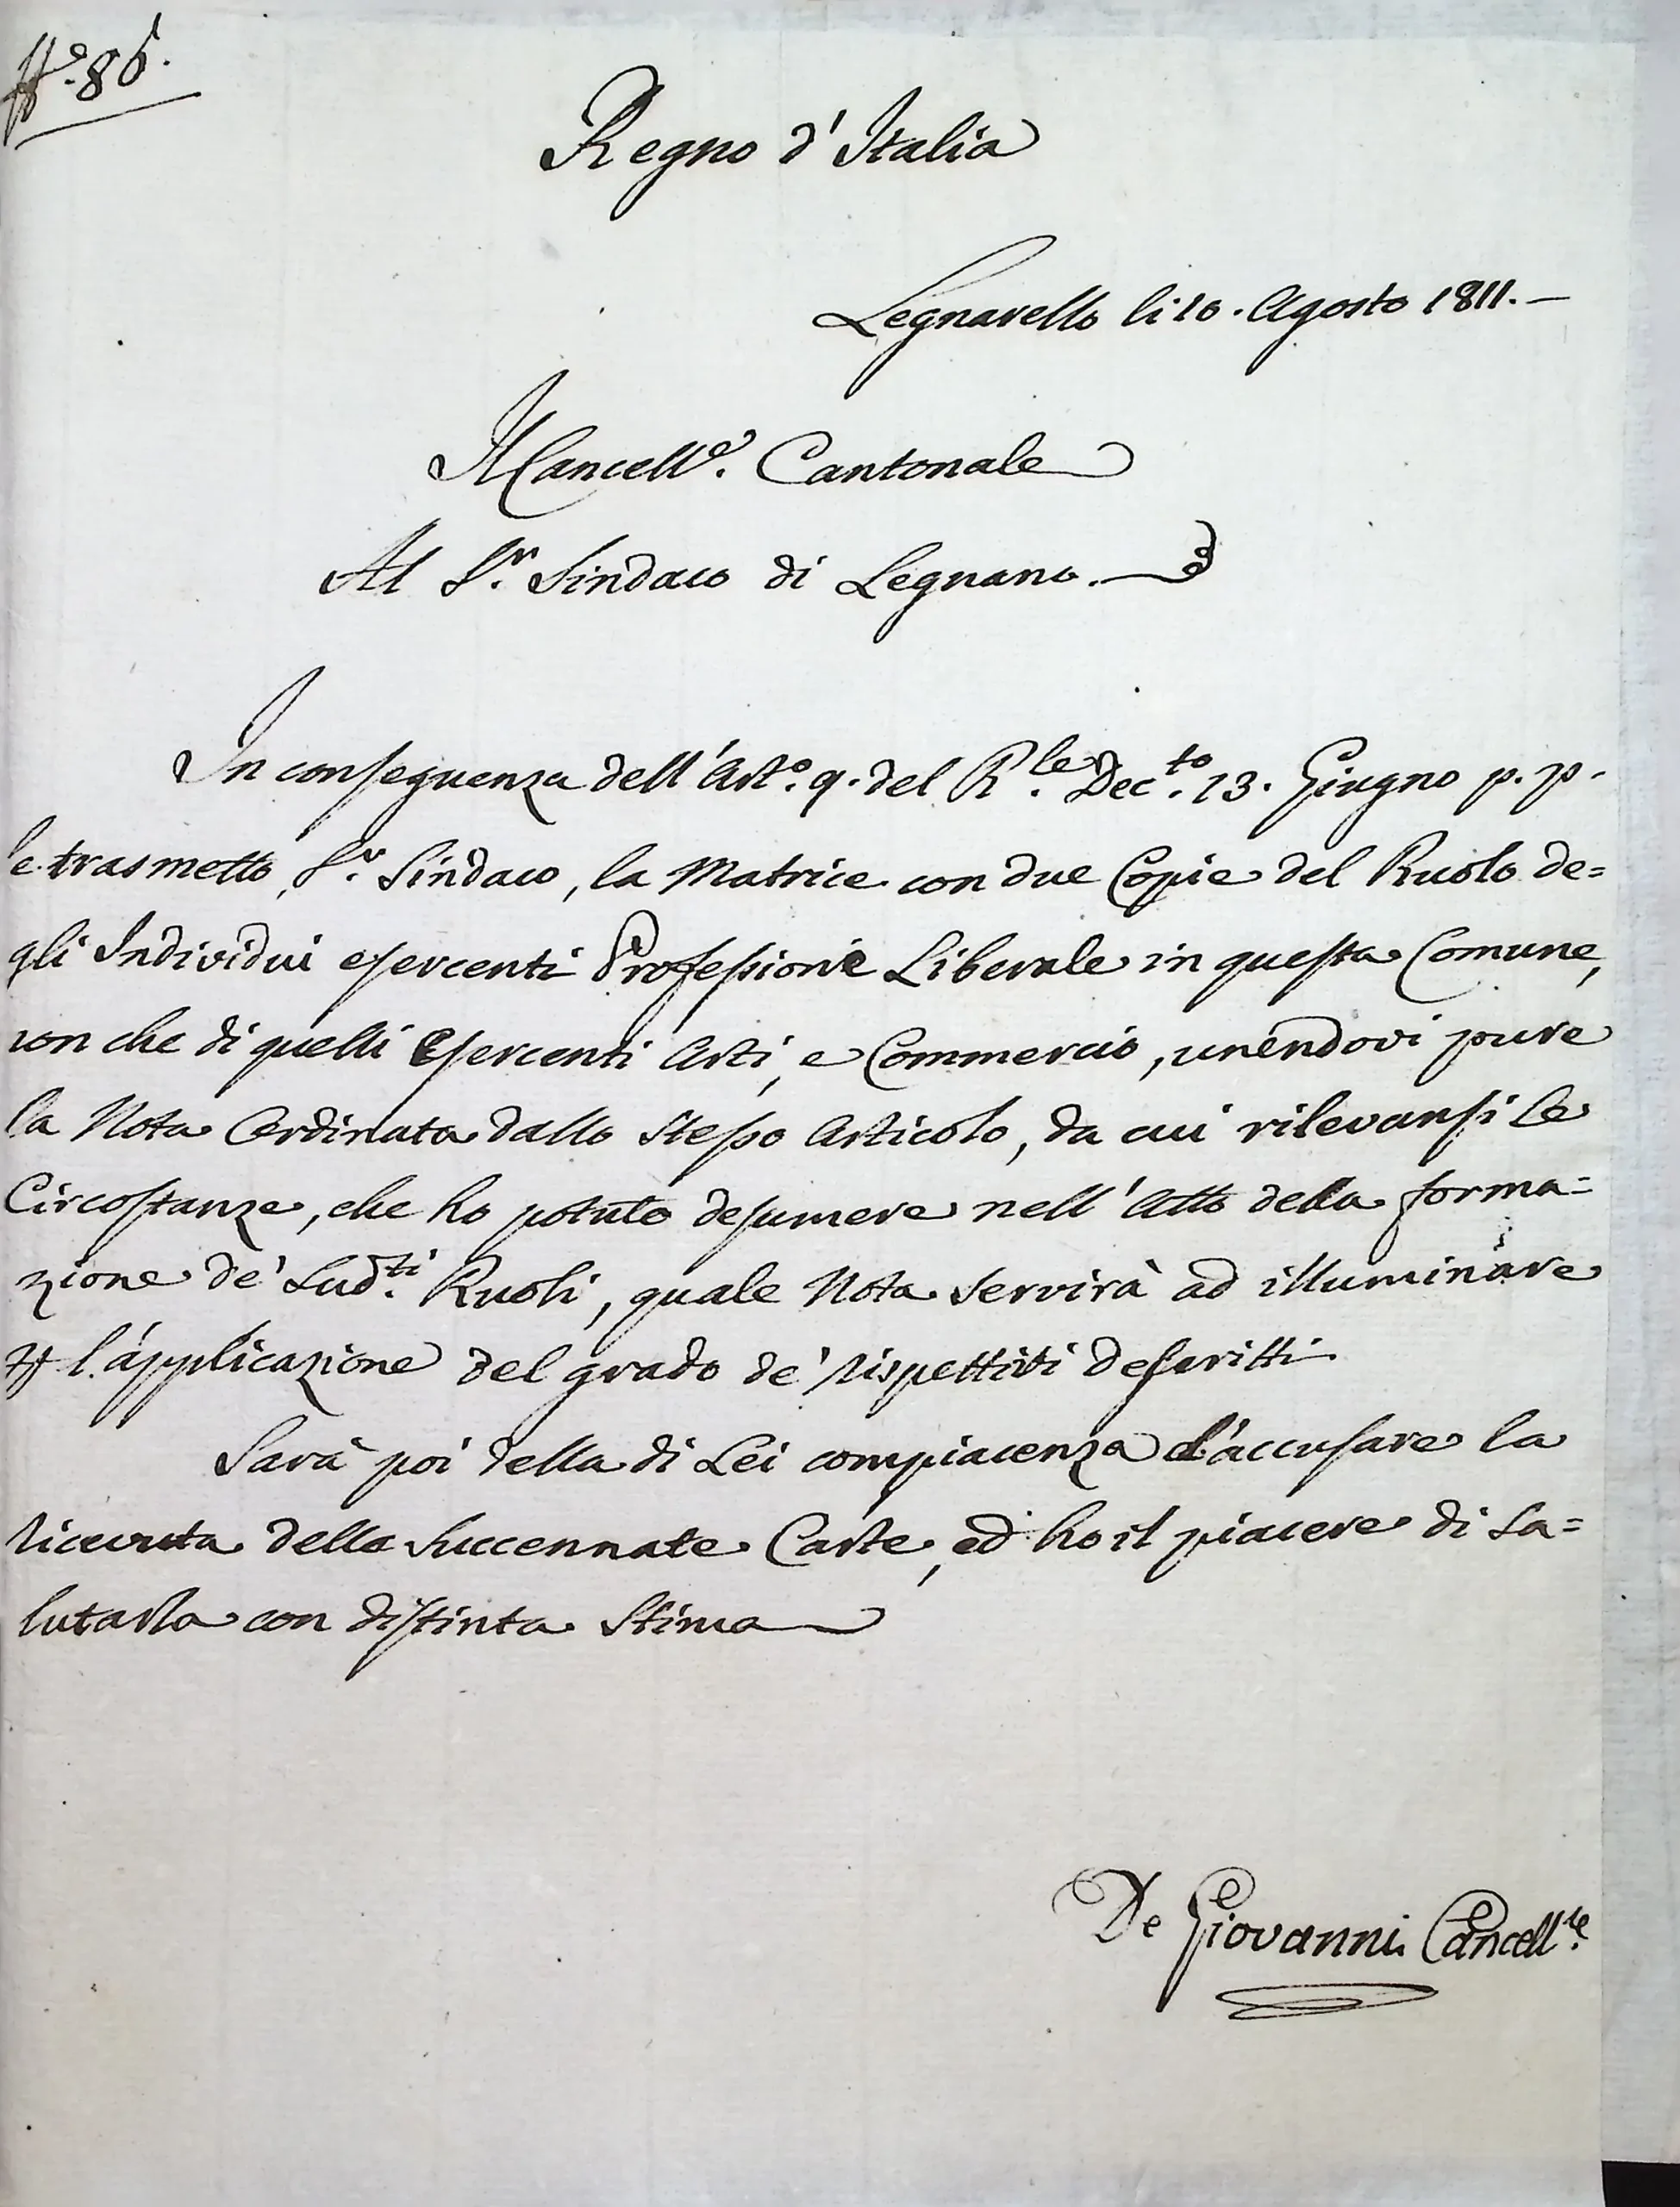 N.° 86.
Regno d'Italia
Legnarello li 10. Agosto 1811.
Il Cancell.e Cantonale
Al S.r Sindaco di Legnano.
In conseguenza dell'Art.° 9. del R.le Dec.to 13. Giugno p. p.
le trasmetto, S.r Sindaco, la Matrice con due Copie del Ruolo de=
gli Individui esercenti Professioni Liberale in questa Comune,
non che di quelli Esercenti Arti, e Commercio, unendovi pure
la Nota Ordinata dallo Stesso Articolo, da cui rilevansi le
Circostanze, che ho potuto desumere nell'Atto della forma=
zione de' Sud.ti Ruoli, quale Nota servirà ad illuminare
l'applicazione del grado de' rispettivi descritti
Sarà poi della di Lei compiacenza d'accusare la
ricevuta delle Succennate Carte, ed ho il piacere di Sa=
lutarla con distinta Stima
De Giovanni Cancell.re